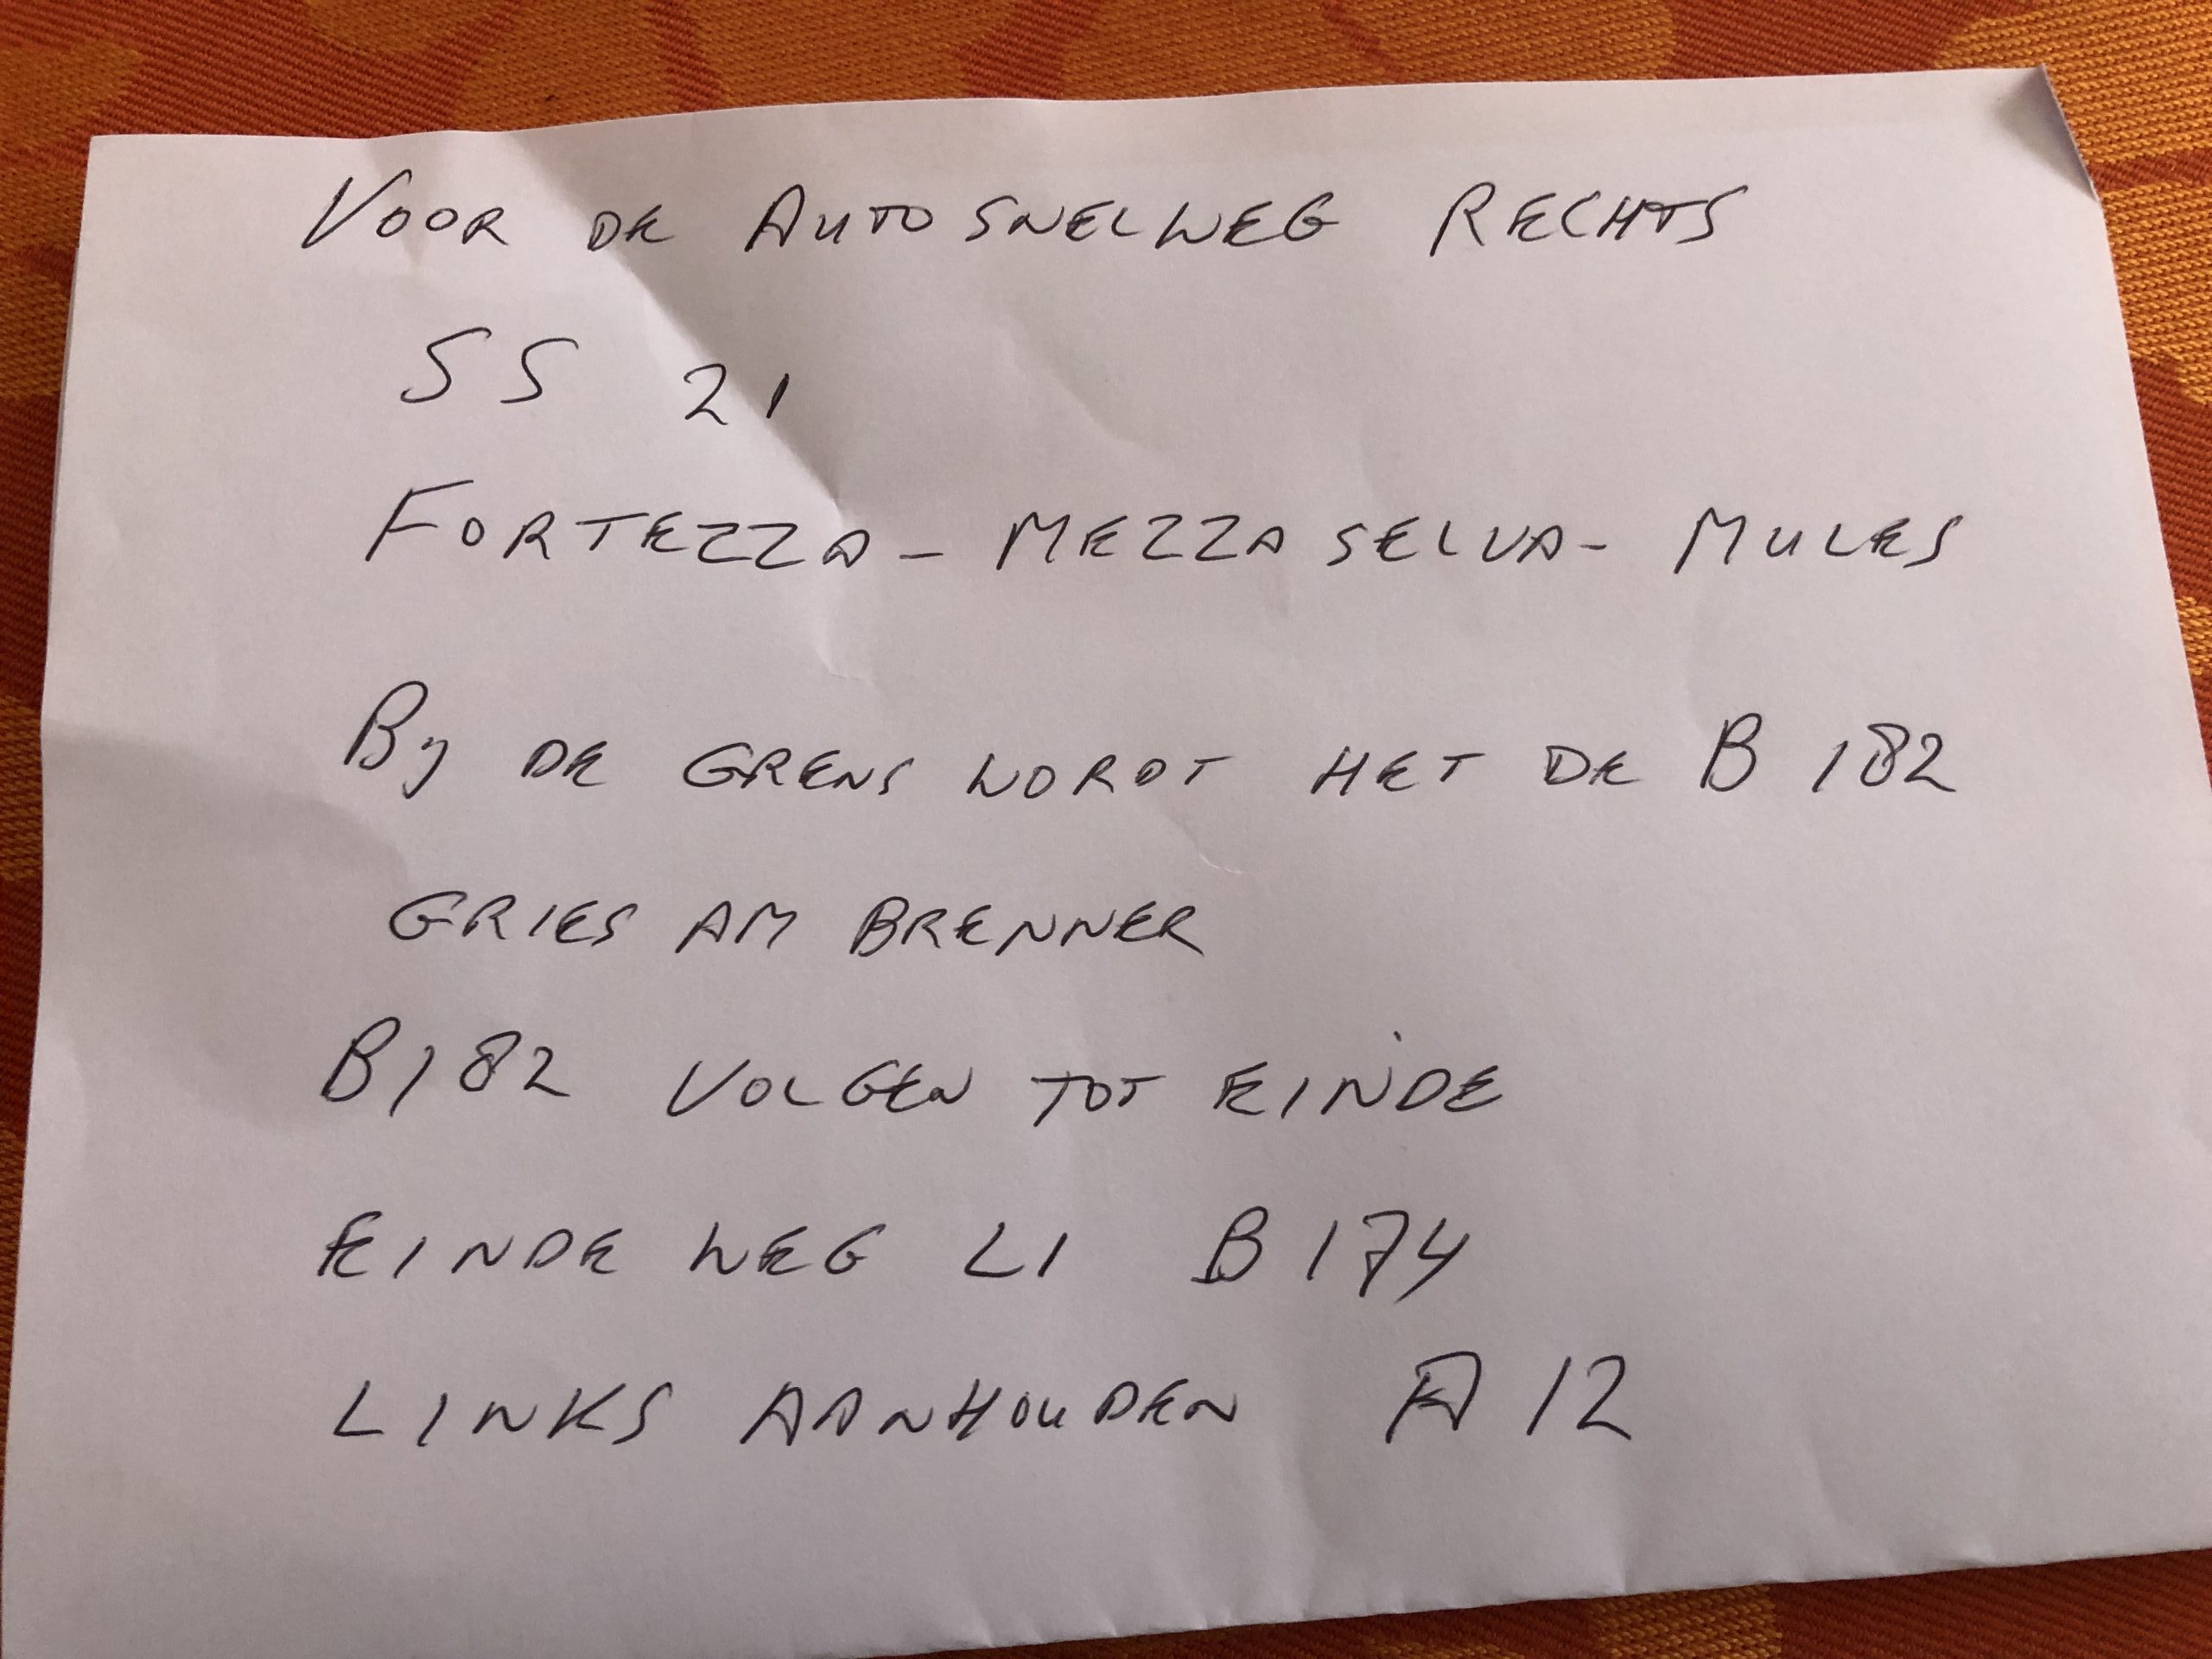 VOOR DE AUTOSNELWEG RECHTS
SS 21
FORTEZZA - MEZZASELVA - MULES
By DE GRENS WORDT HET DE B 182
GRIES AM BRENNER
B182 VOLGEN TOT EINDE
EINDE WEG LI B174
LINKS AANHOUDEN A12